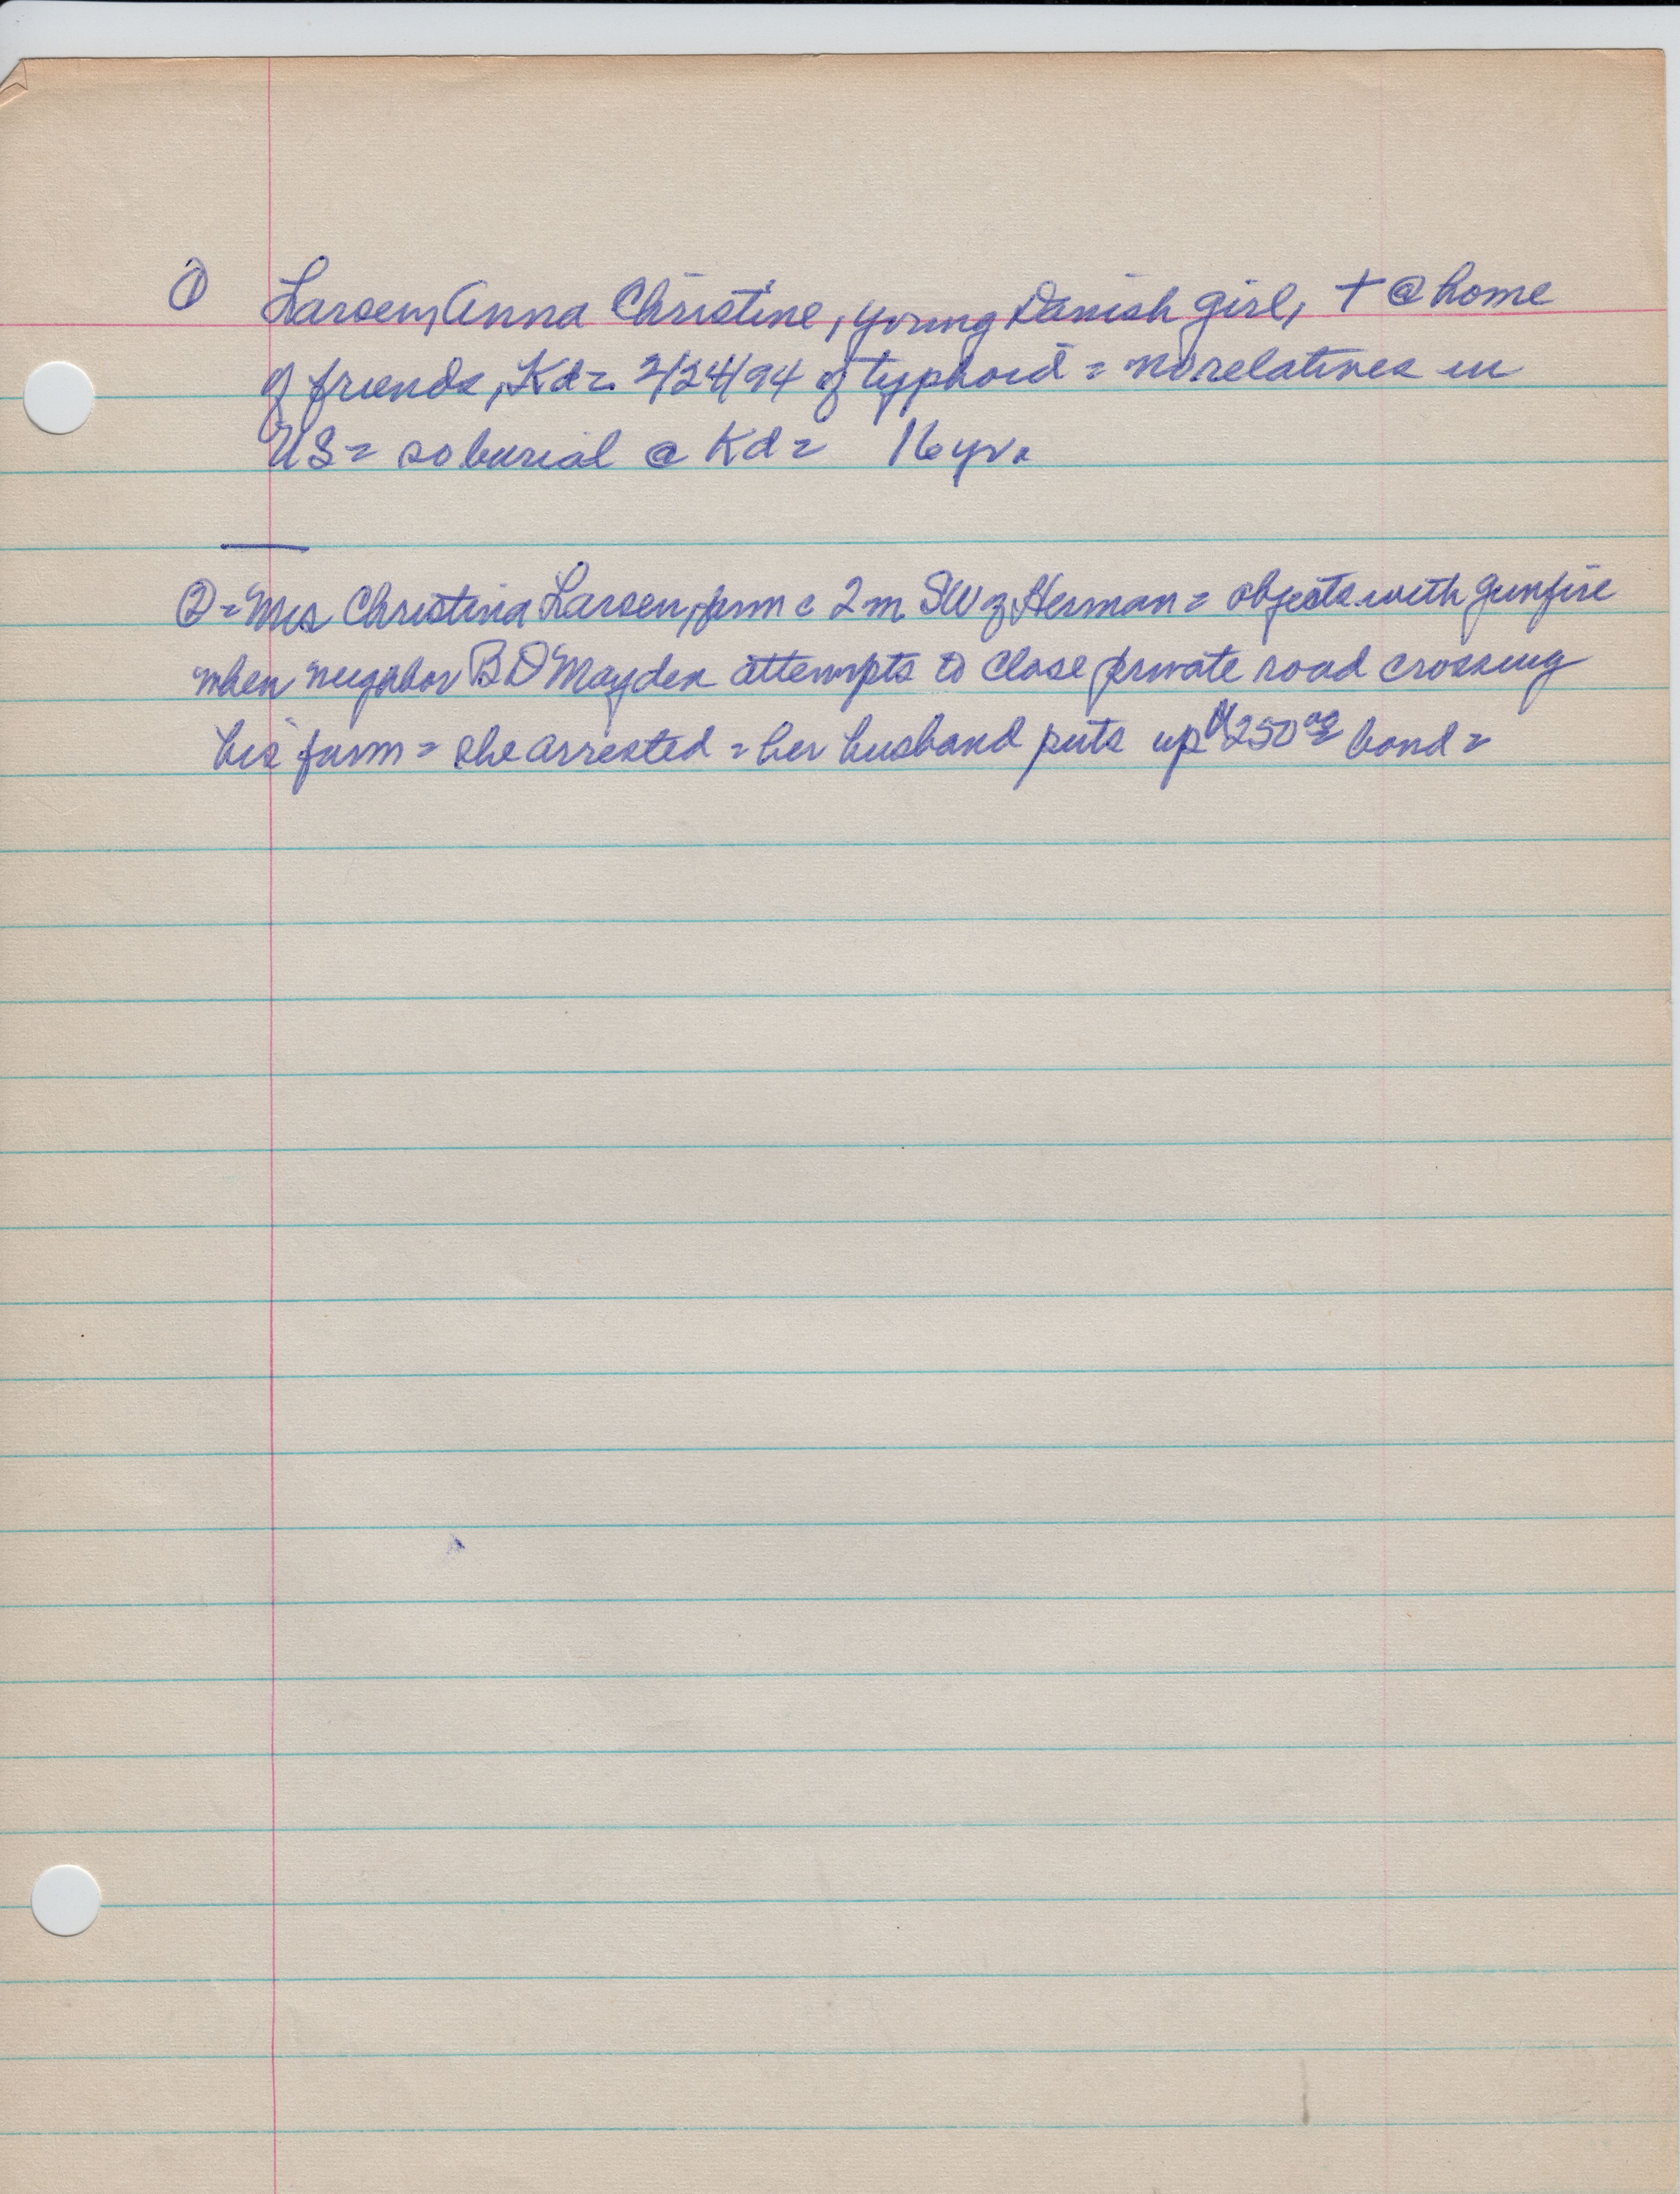 ① Larsen, Anna Christine, young Danish girl, + @ home
of friends, Kd = 2/24/94 of typhoid = no relatives in
US = so burial @ Kd = 16 yrs
② = Mrs Christina Larsen, farm c 2 m SW of Herman = objects with gunfire
when neighbor B D Mayden attempts to close private road crossing
his farm = she arrested = her husband puts up $250 00 bond =